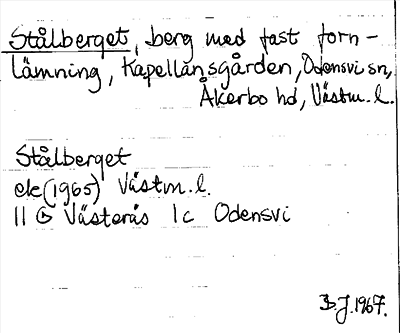 Stålberget, berg med fast forn-
lämning, Kapellansgården, Odensvi sn,
Åkerbo hd, Västm. l.
Stålberget
ek (1965) Västm. l.
11 G Västerås 1c Odensvi
B.J. 1967.